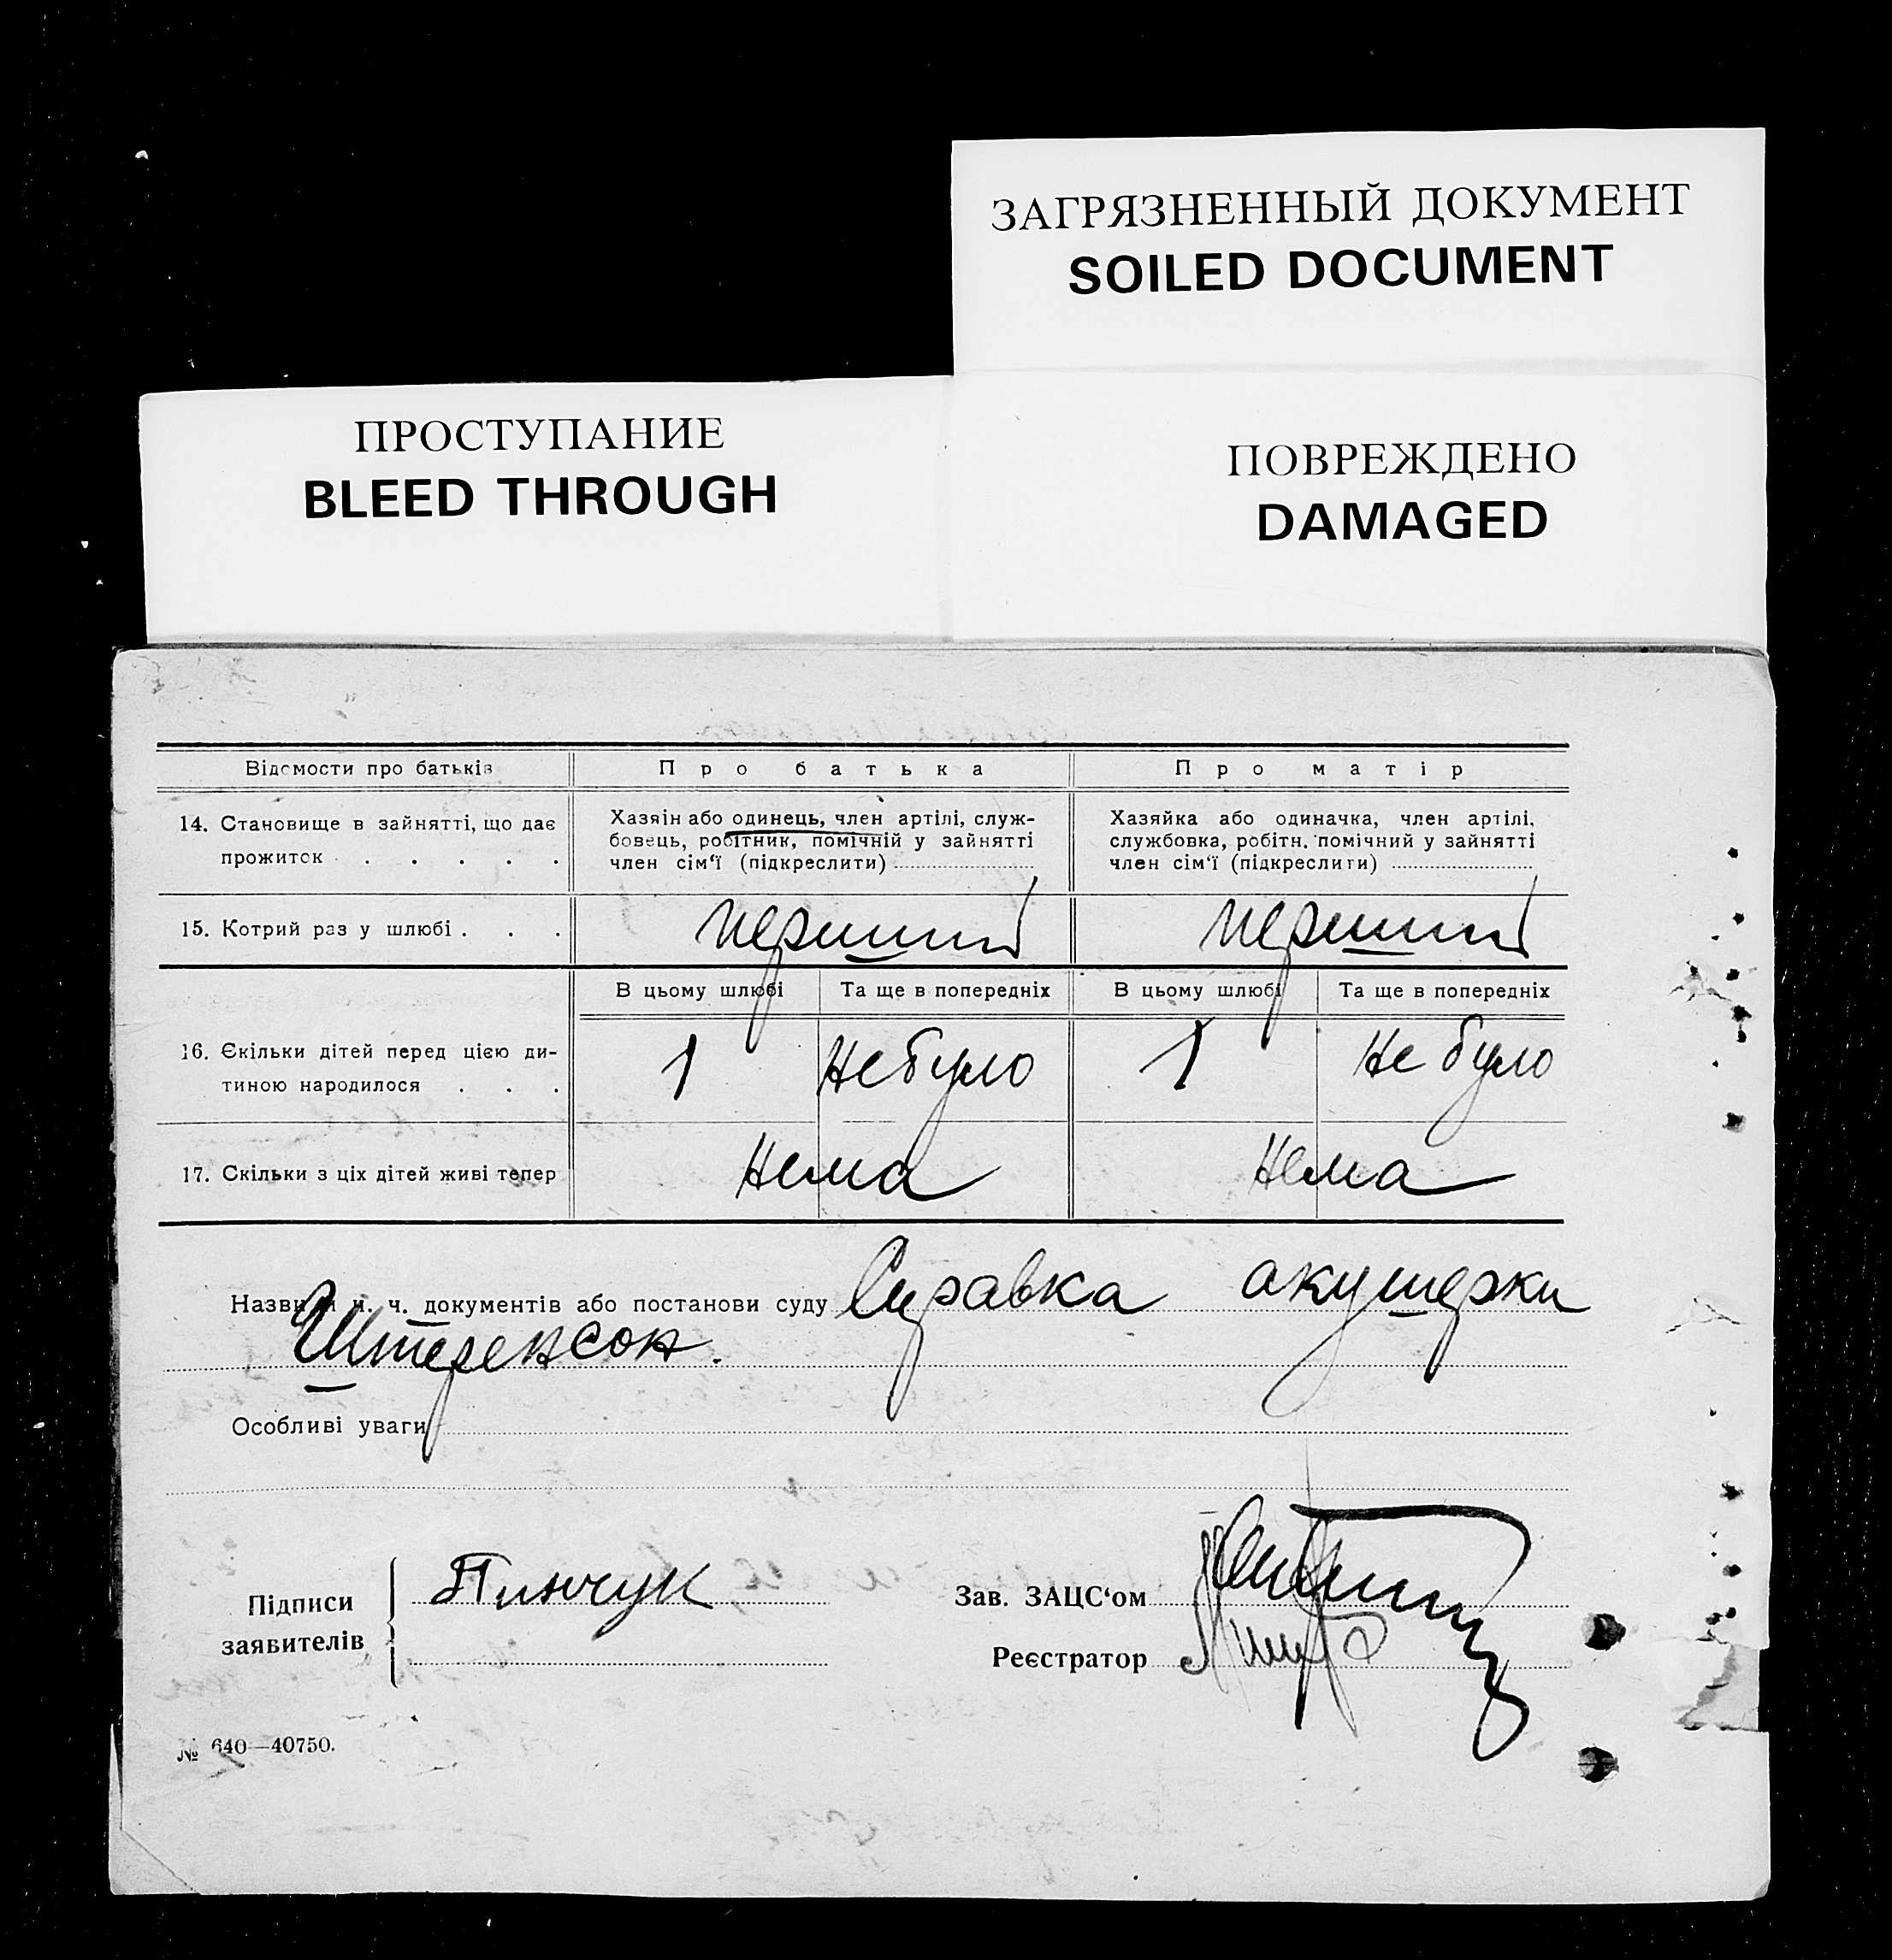 ЗАГРЯЗНЕННЫЙ ДОКУМЕНТ
SOILED DOCUMENT
ПРОСТУПАНИЕ
BLEED THROUGH
ПОВРЕЖДЕНО
DAMAGED
Відомости про батьків
Про батька
Про матір
14. Становище в зайнятті, що дає
прожиток . . . . .
Хазяін або одинець, член артілі, служ-
бовець, робітник, помічній у зайнятті
член сім‘ї (підкреслити)
Хазяйка або одиначка, член артілі,
службовка, робітн. помічний у зайнятті
член сім‘ї (підкреслити)
15. Котрий раз у шлюбі . . .
перший
перший
В цьому шлюбі
Та ще в попередніх
В цьому шлюбі
Та ще в попередніх
16. Скільки дітей перед цією ди-
тиною народилося . . .
1
Не було
1
Не було
17. Скільки з ціх дітей живі тепер
Нема
Нема
Назви й ч. ч. документів або постанови суду Справка акушерки
Штеренсон.
Особливі уваги
Підписи
заявителів
Пинчук
Зав. ЗАЦС‘ом
Реєстратор
№ 640—40750.